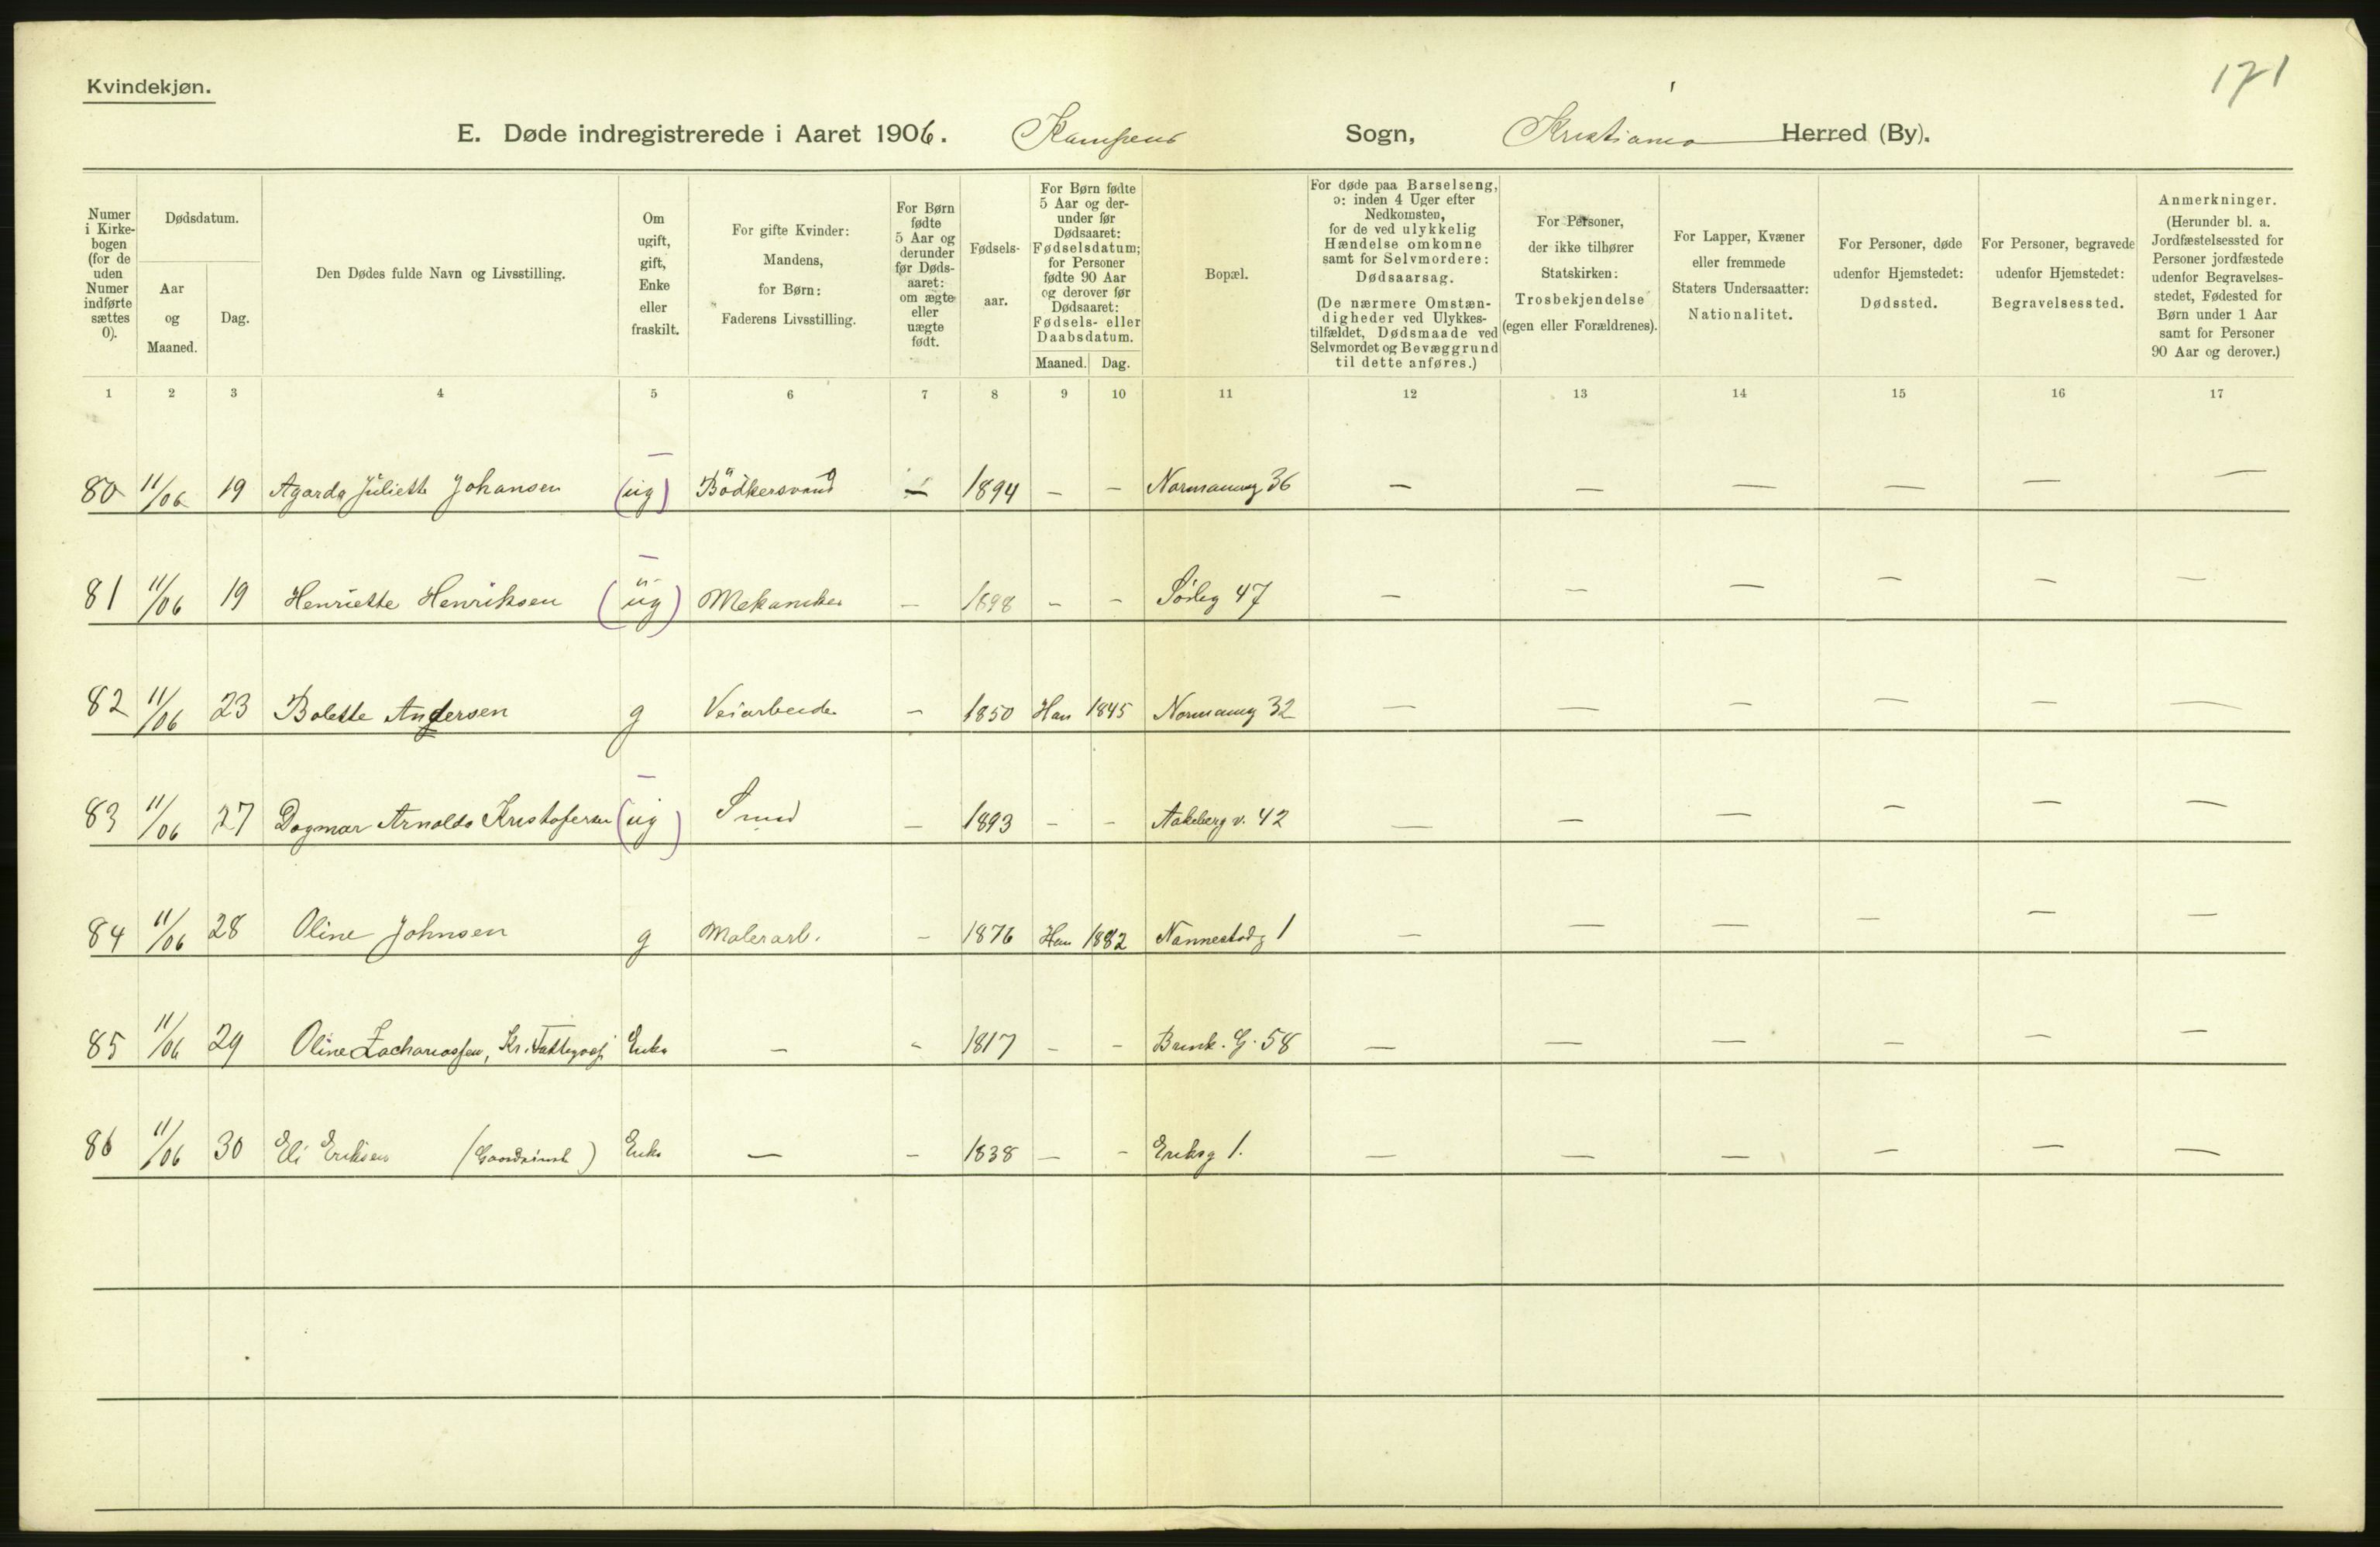 Kvindekjøn.
171
E. Døde indregistrerede i Aaret 1906. Kampens Sogn, Kristiania Herred (By).
Numer i Kirkebogen (for de uden Numer indførte sættes 0).
Dødsdatum.
Aar og Maaned.
Dag.
Den Dødes fulde Navn og Livsstilling.
Om ugift, gift, Enke eller fraskilt.
For gifte Kvinder: Mandens, for Børn: Faderens Livsstilling.
For Børn fødte 5 Aar og derunder før Dødsaaret: om ægte eller uægte født.
Fødselsaar.
For Børn fødte 5 Aar og derunder før Dødsaaret: Fødselsdatum; for Personer fødte 90 Aar og derover før Dødsaaret: Fødsels- eller Daabsdatum.
Maaned. Dag.
Bopæl.
For døde paa Barselseng, ɔ: inden 4 Uger efter Nedkomsten, for de ved ulykkelig Hændelse omkomne samt for Selvmordere: Dødsaarsag. (De nærmere Omstændigheder ved Ulykkestilfældet, Dødsmaade ved Selvmordet og Bevæggrund til dette anføres.)
For Personer, der ikke tilhører Statskirken: Trosbekjendelse (egen eller Forældrenes).
For Lapper, Kvæner eller fremmede Staters Undersaatter: Nationalitet.
For Personer, døde udenfor Hjemstedet: Dødssted.
For Personer, begravede udenfor Hjemstedet: Begravelsessted.
Anmerkninger. (Herunder bl. a. Jordfæstelsessted for Personer jordfæstede udenfor Begravelsesstedet, Fødested for Børn under 1 Aar samt for Personer 90 Aar og derover.)
1 2 3 4 5 6 7 8 9 10 11 12 13 14 15 16 17
80 11/06 19 Agarda Juliette Johansen (ug) Bødkersvend – 1894 – – Normanng 36 – – – – – –
81 11/06 19 Henriette Henriksen (ug) Mekaniker – 1898 – – Sørlig 47 – – – – – –
82 11/06 23 Bolette Andersen g Veiarbeider – 1850 Han 1845 Normanng 32 – – – – – –
83 11/06 27 Dagmar Arnolda Kristofersen (ug) Smed – 1893 – – Aakeberg v. 42 – – – – – –
84 11/06 28 Oline Johnsen g Malerarb. – 1876 Han 1882 Nannestadg 1 – – – – – –
85 11/06 29 Oline Zachariassen, Kr. Fattigvæs Enke – – 1817 – – Brink. G. 58 – – – – – –
86 11/06 30 Eli Eriksen Enke – – 1838 – – Eriksg 1. – – – – – –